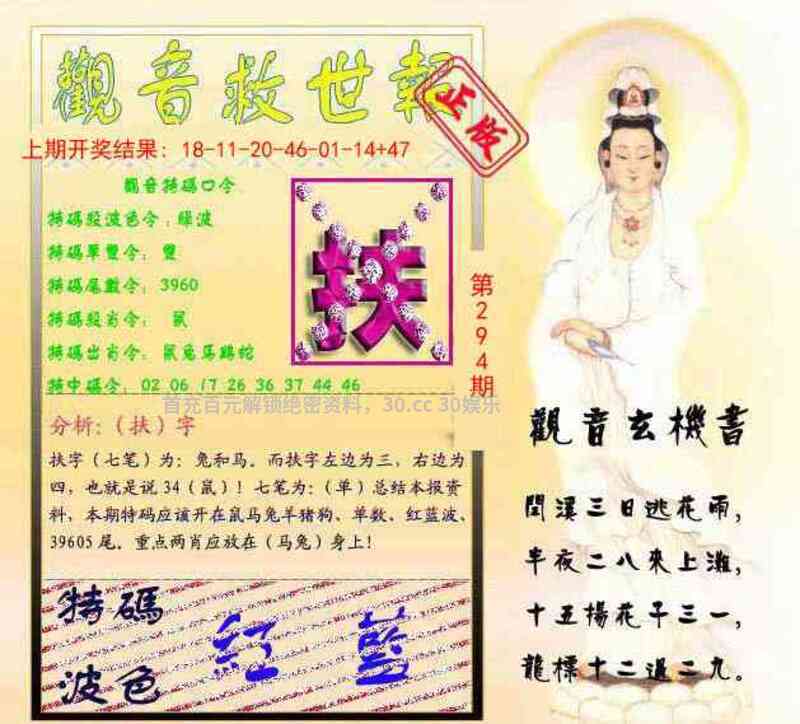 觀音救世報
正版
上期开奖结果：18-11-20-46-01-14+47
觀音特碼口令
特碼殺波色令：綠波
特碼單雙令：雙
特碼尾數令：3960
特碼殺肖令：鼠
特碼出肖令：鼠兔馬鷄蛇
特中碼令：02 06 17 26 36 37 44 46
扶
第294期
首充百元解锁绝密资料，30.cc 30娱乐
分析：（扶）字
扶字（七笔）为：兔和马。而扶字左边为三，右边为
四，也就是说34（鼠）！七笔为：（单）总结本报资
料，本期特码应该开在鼠马兔羊猪狗、单数。红蓝波、
39605尾。重点两肖应放在（马兔）身上！
特碼
波色
紅 藍
觀音玄機書
閏漢三日逃花雨，
半夜二八來上灘，
十五楊花子三一，
龍標十二過二九。